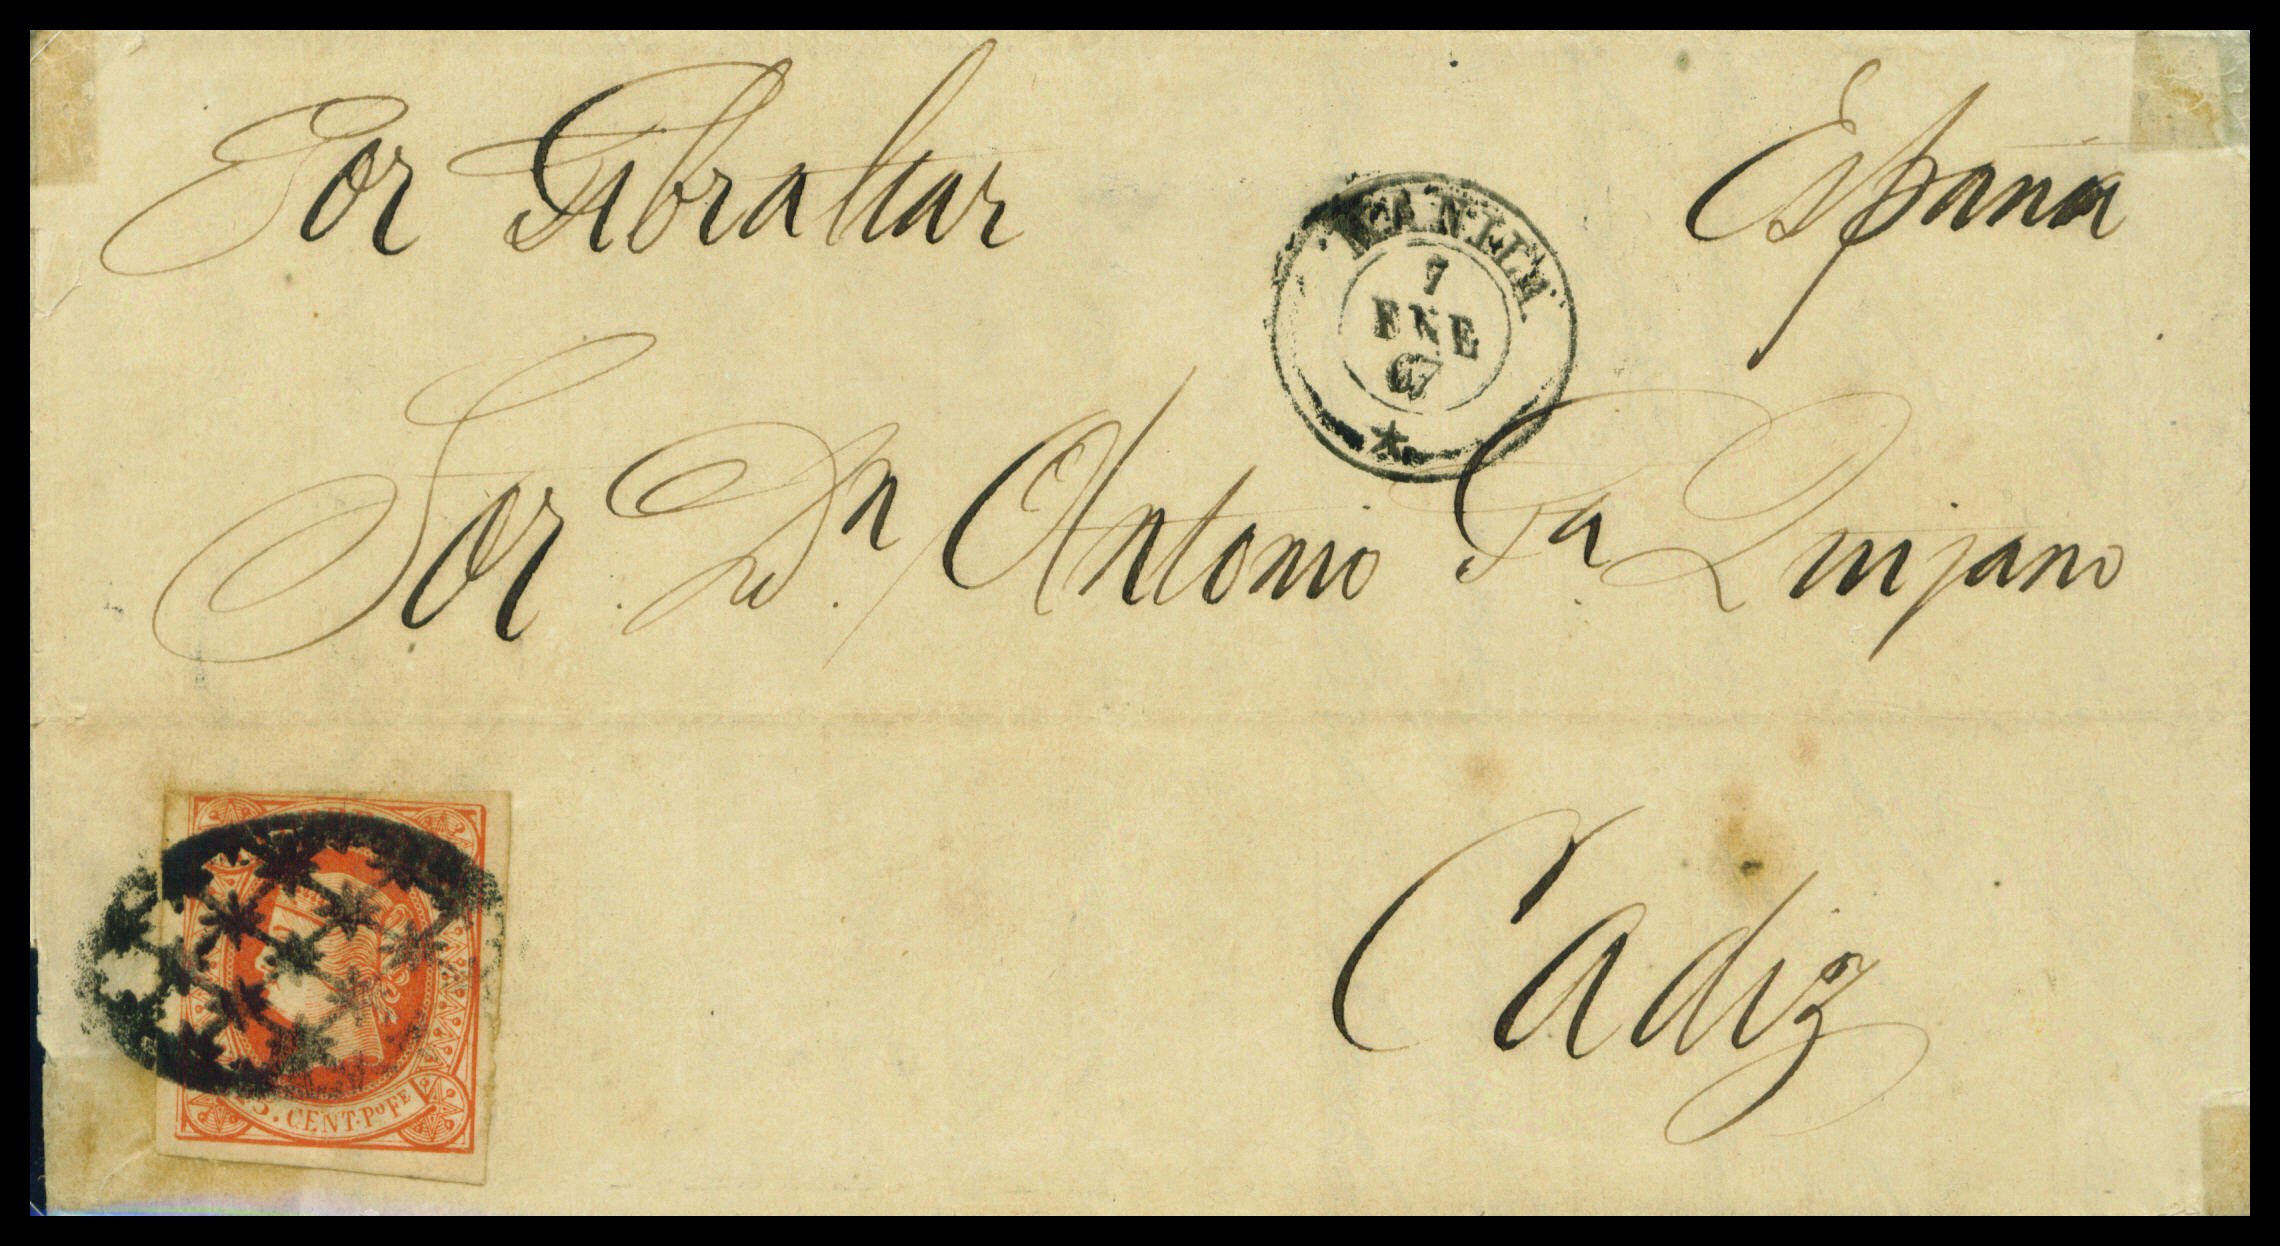 Por Gibraltar España
MANILA
7
ENE
67
Sor. Dn. Antonio Ga. Quijano
Cadiz
CENT. Po FE